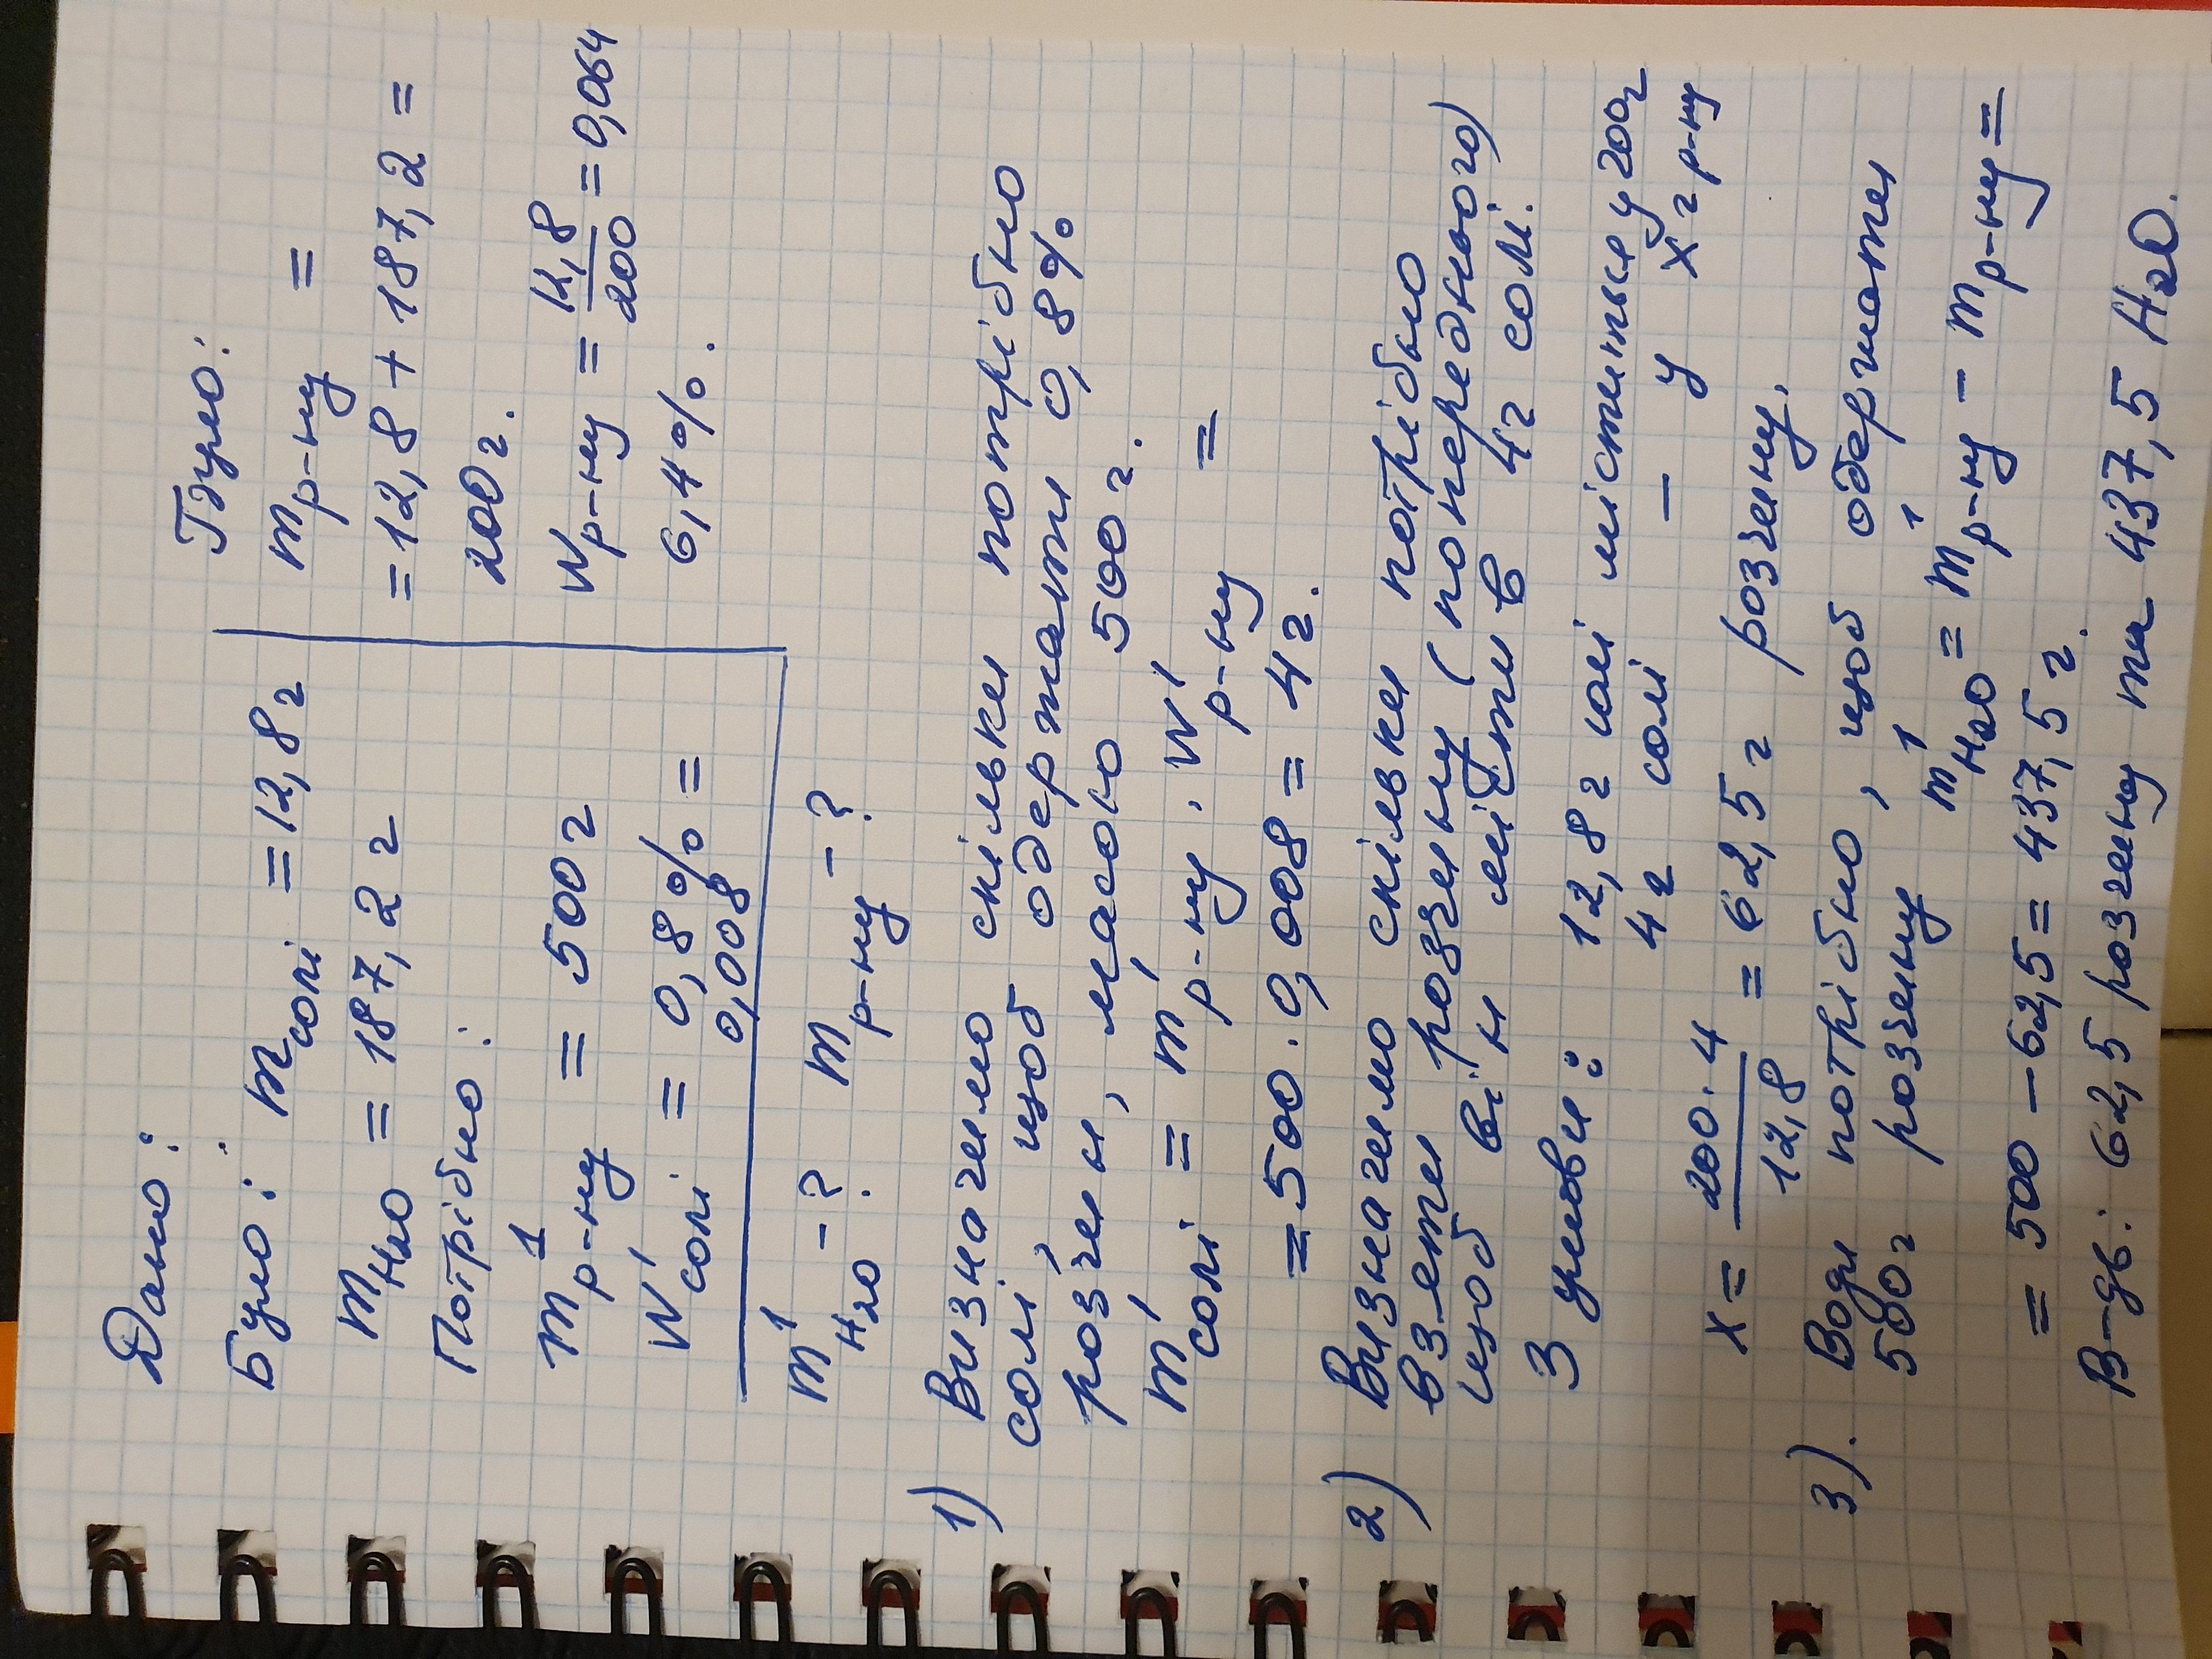 Дано:
Було: mсолі = 12,8г
mH2O = 187,2 г
Потрібно:
m¹р-ну = 500 г
W'солі = 0,8% =
0,008
m¹H2O - ? mр-ну - ?
Було:
mр-ну =
= 12,8 + 187,2 =
200г.
Wр-ну = 12,8/200 = 0,064
6,4%.
1) Визначимо скільки потрібно
солі, щоб одержати 0,8%
розчин, масою 500г.
m'солі = m'р-ну · W'р-ну =
= 500 · 0,008 = 4г.
2) Визначимо скільки потрібно
взяти розчину (попереднього)
щоб він містив 4г солі.
З умови: 12,8г солі міститься у 200г
4г солі — у хг р-ну
x = 200·4/12,8 = 62,5 г розчину.
3). Води потрібно, щоб одержати
500г розчину m¹H2O = m¹р-ну - mр-ну =
= 500 - 62,5 = 437,5 г.
В-дь: 62,5 розчину та 437,5 H2O.